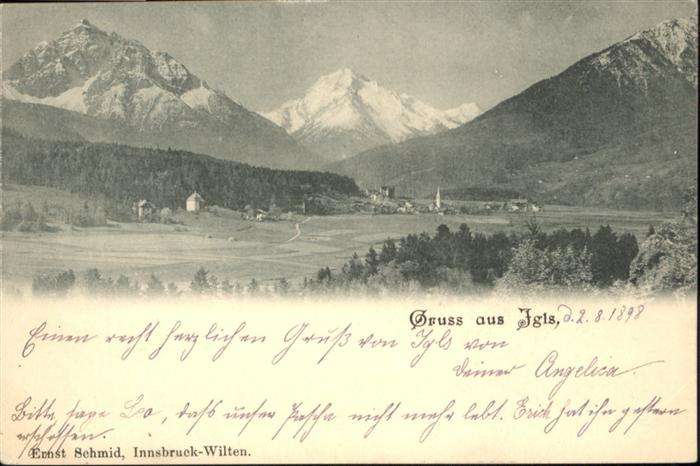 Gruss aus Igls, d. 2. 8. 1898
Einen recht herzlichen Gruß von Igls von
deiner Angelica.
Bitte sage Leo, daß unser Pascha nicht mehr lebt. Erich hat ihn gestern
erschossen.
Ernst Schmid, Innsbruck-Wilten.